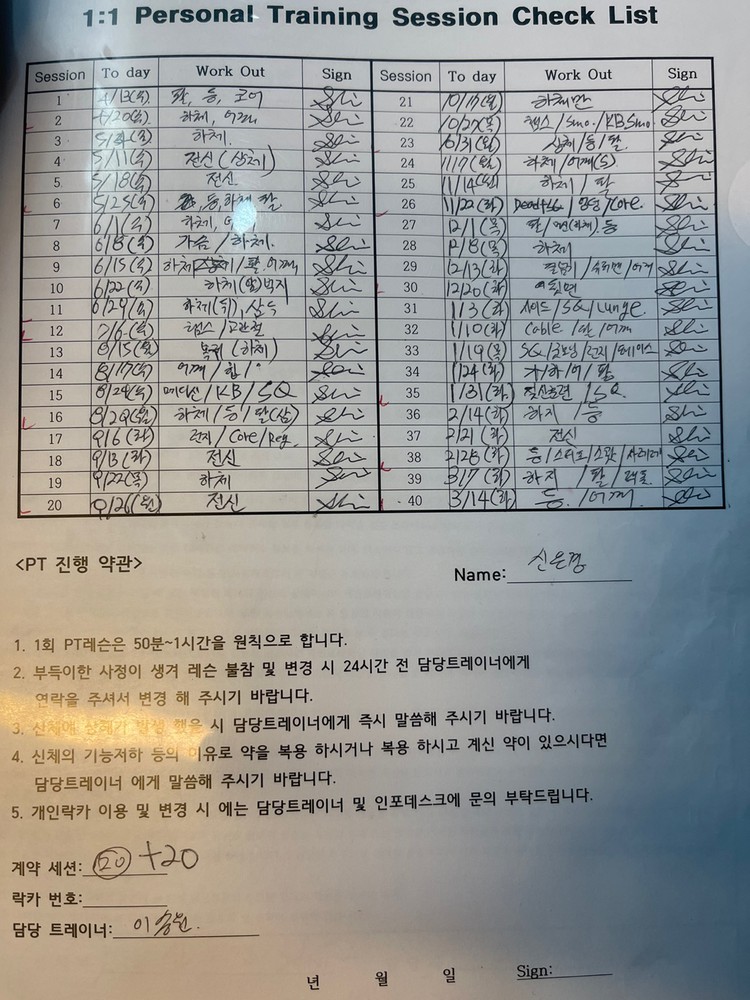 1:1 Personal Training Session Check List
Session To day Work Out Sign
1 4/13(목) 팔, 등, 코어
2 4/20(목) 하체, 어깨
3 하체.
4 5/11(목) 전신(상체)
5 5/18(목) 전신
6 5/25(목) 등, 하체, 팔
7 6/1(목) 하체,
8 6/8(목) 가슴/하체.
9 6/15(목) 하체 /팔, 어깨
10 6/22(목) 하체(앞)벅지
11 6/29(목) 하체(뒤),
12 7/6(목) 고관절
13 8/15(월) (하체)
14 8/17(목) 어깨/힙/
15 8/24(목) /KB/SQ
16 8/29(월) 하체/등/팔(삼)
17 9/6(화) 런지/Core/
18 9/13(화) 전신
19 9/22(목) 하체
20 9/26(월) 전신
Session To day Work Out Sign
21 10/17(월) 하체만
22 10/27(목) 체스/Smo./KBSmo.
23 10/31(월) 상체/등/팔.
24 11/7(월) 하체/어깨(S)
25 11/14(월) 하체/팔
26 11/22(화) Dead /Core.
27 12/1(목) 팔/ (하체). 등
28 12/8(목) 하체
29 12/13(화) /어깨
30 12/20(화)
31 1/3(화) 사이드/SQ/Lunge.
32 1/10(화) Cable/팔/어깨
33 1/19(목) SQ/굿모닝/런지/
34 1/24(화) 가/하/어/팔
35 1/31(화) /SQ.
36 2/14(화) 하지/등
37 2/21(화) 전신
38 2/28(화) 등/스티프/스쿼트/사레레
39 3/7(화) 하지/팔/
40 3/14(화) 등./어깨.
<PT 진행 약관>
Name: 신은경
1. 1회 PT레슨은 50분~1시간을 원칙으로 합니다.
2. 부득이한 사정이 생겨 레슨 불참 및 변경 시 24시간 전 담당트레이너에게
연락을 주셔서 변경 해 주시기 바랍니다.
3. 신체에 상해가 발생 했을 시 담당트레이너에게 즉시 말씀해 주시기 바랍니다.
4. 신체의 기능저하 등의 이유로 약을 복용 하시거나 복용 하시고 계신 약이 있으시다면
담당트레이너 에게 말씀해 주시기 바랍니다.
5. 개인락카 이용 및 변경 시 에는 담당트레이너 및 인포데스크에 문의 부탁드립니다.
계약 세션: 20 +20
락카 번호:
담당 트레이너: 이승원.
년 월 일 Sign: